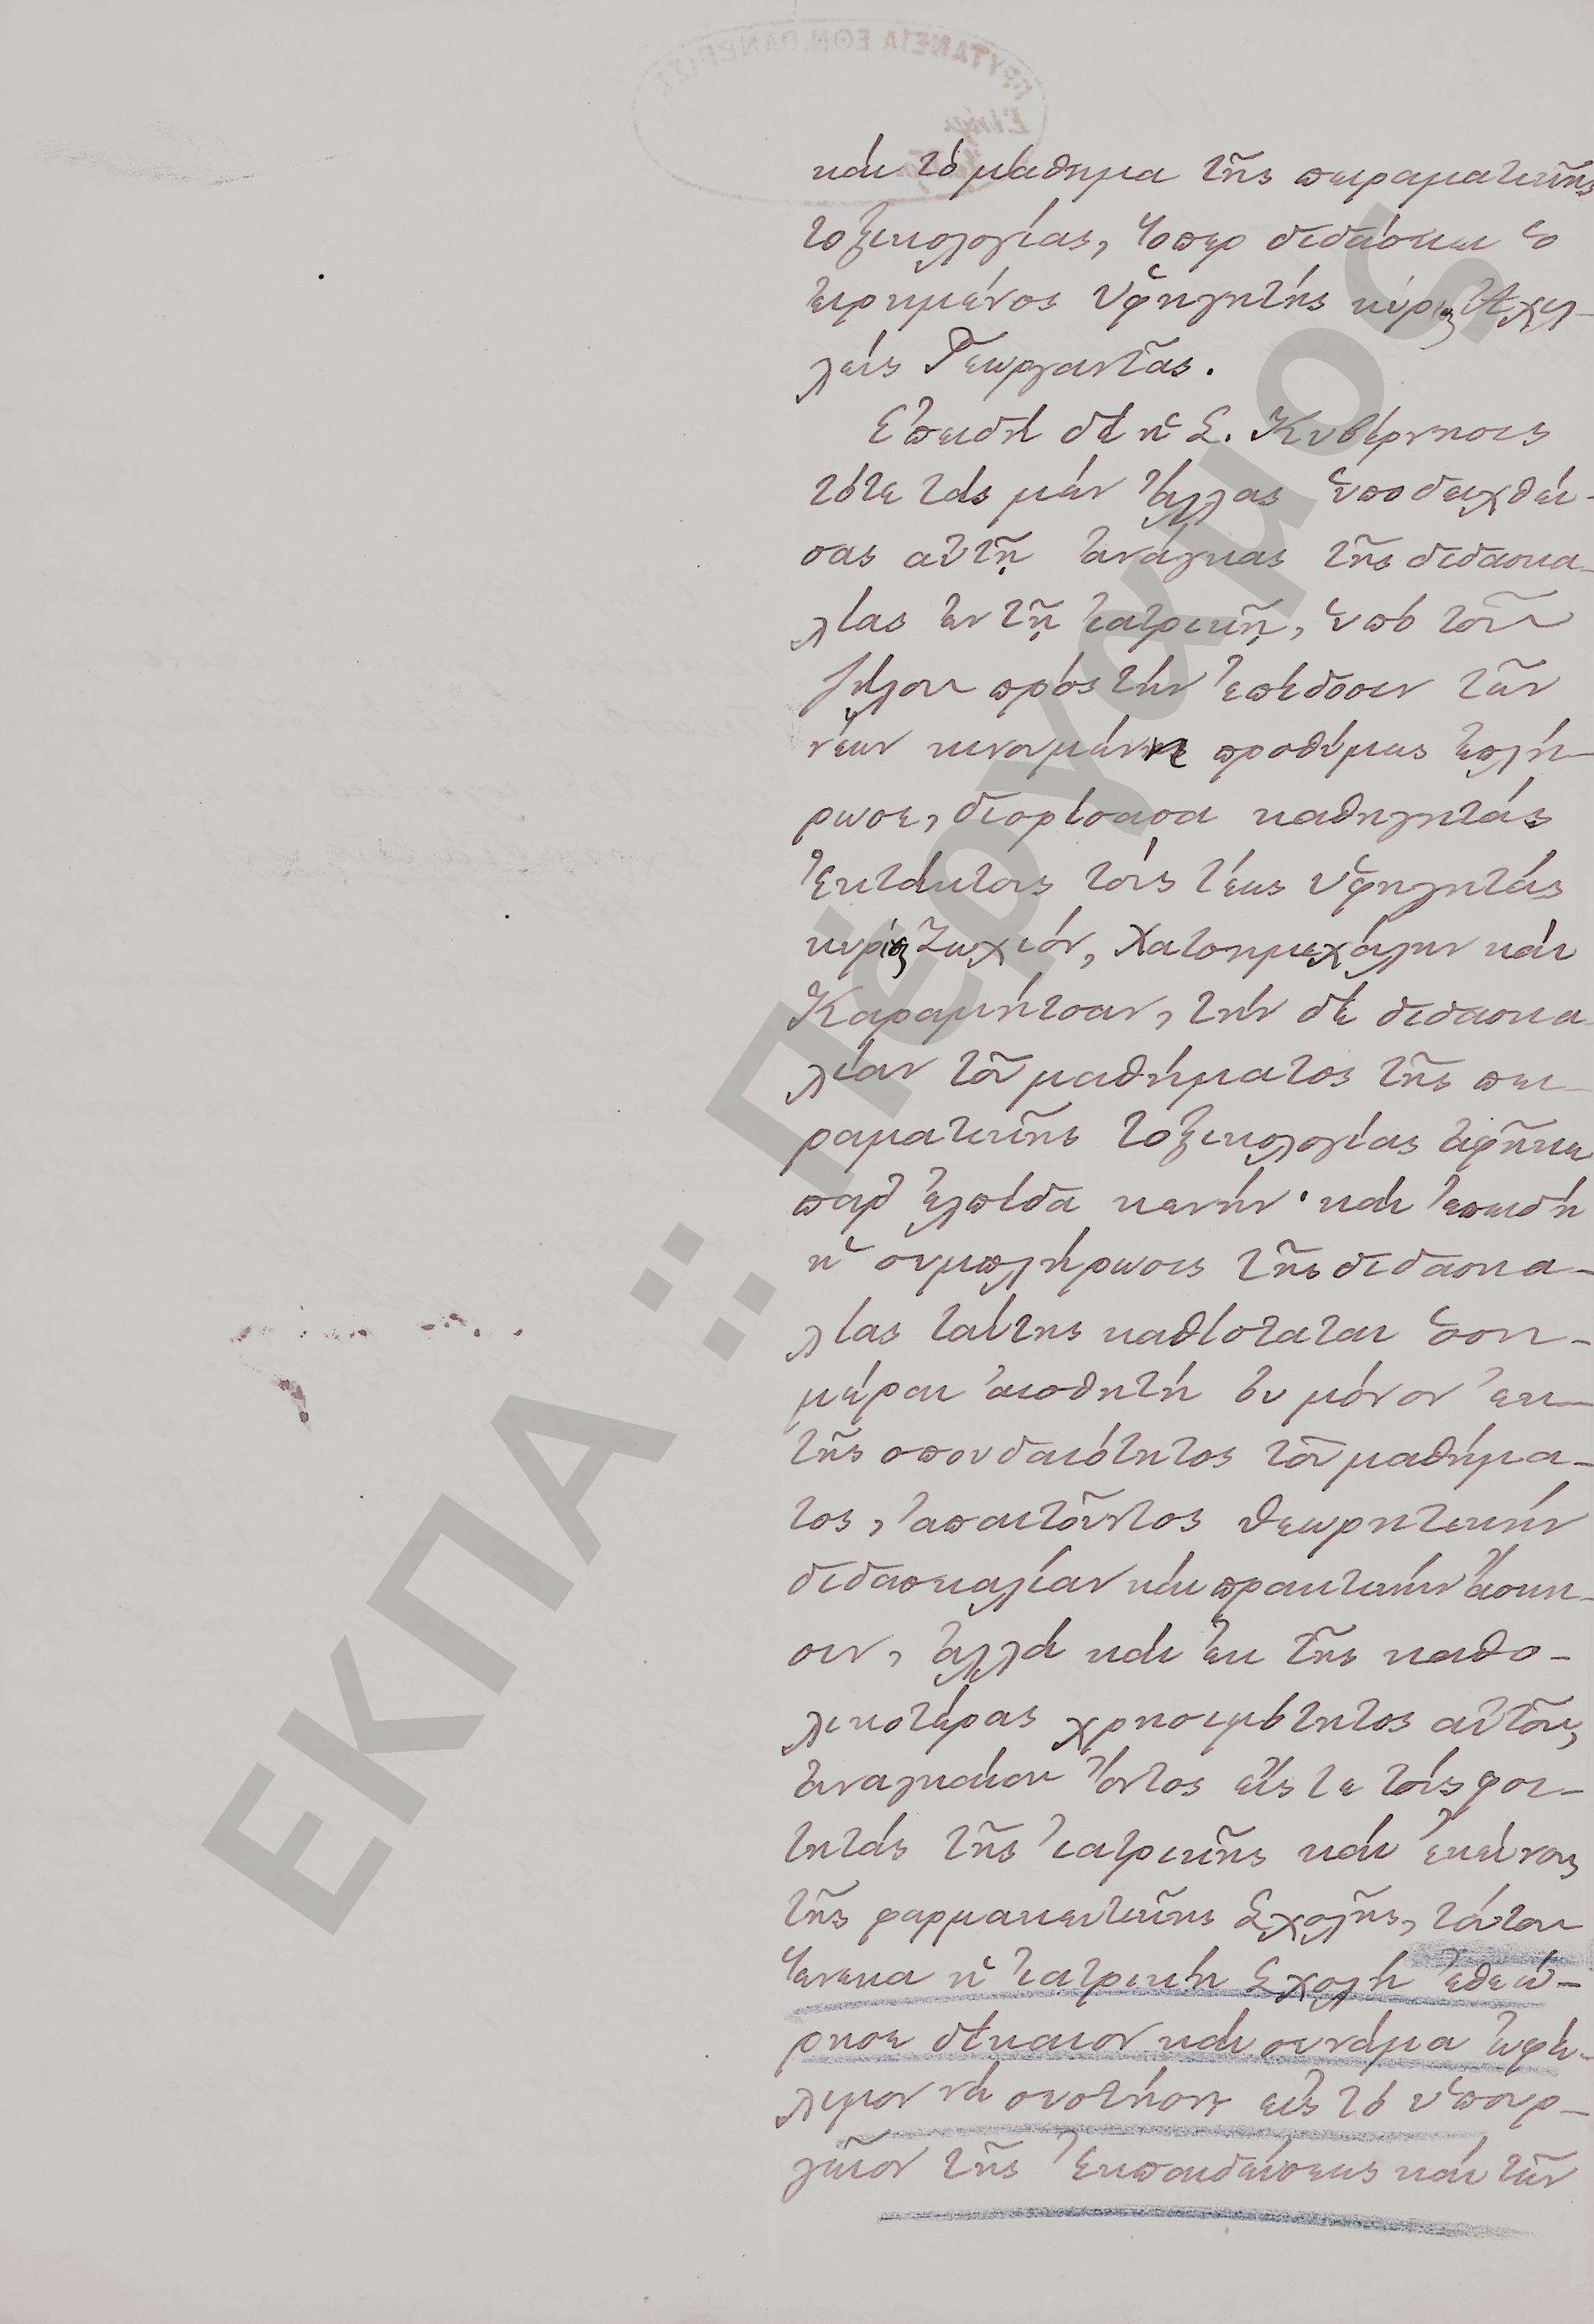 καὶ τὸ μάθημα τῆς πειραματικῆς
τοξικολογίας, ὅπερ διδάσκει ὁ
εἰρημένος ὑφηγητὴς κύριος Ἀχιλ-
λεὺς Γεωργαντᾶς.
Ἐπειδὴ δὲ ἡ Σ. Κυβέρνησις
τότε τὰς μὲν ἄλλας ὑποδειχθεί-
σας αὐτῇ ἀνάγκας τῆς διδασκα-
λίας ἐν τῇ ἰατρικῇ, ὑπὸ τοῦ
ζήλου πρὸς τὴν ἐπίδοσιν τῶν
νέων κινουμένη προθύμως ἐπλή-
ρωσε, διορίσασα καθηγητὰς
ἐκτάκτους τοὺς τέως ὑφηγητὰς
κυρίους Ζωχιόν, Χατσημιχάλην καὶ
Καραμήτσαν, τὴν δὲ διδασκα-
λίαν τοῦ μαθήματος τῆς πει-
ραματικῆς τοξικολογίας ἀφῆκε
παρ' ἐλπίδα κενήν· καὶ ἐπειδὴ
ἡ συμπλήρωσις τῆς διδασκα-
λίας ταύτης καθίσταται ὁση-
μέραι αἰσθητὴ οὐ μόνον ἐκ
τῆς σπουδαιότητος τοῦ μαθήμα-
τος, ἀπαιτοῦντος θεωρητικὴν
διδασκαλίαν καὶ πρακτικὴν ἄσκη-
σιν, ἀλλὰ καὶ ἐκ τῆς καθο-
λικωτέρας χρησιμότητος αὐτοῦ,
ἀναγκαίου ὄντος εἴς τε τοὺς φοι-
τητὰς τῆς ἰατρικῆς καὶ ἐκείνους
τῆς φαρμακευτικῆς Σχολῆς, τούτου
ἕνεκα ἡ ἰατρικὴ Σχολὴ ἐθεώ-
ρησε δίκαιον καὶ συνάμα ὠφέ-
λιμον νὰ συστήσῃ εἰς τὸ ὑπουρ-
γεῖον τῆς Ἐκπαιδεύσεως καὶ τῶν
ΕΚΠΑ :: Πέργαμος